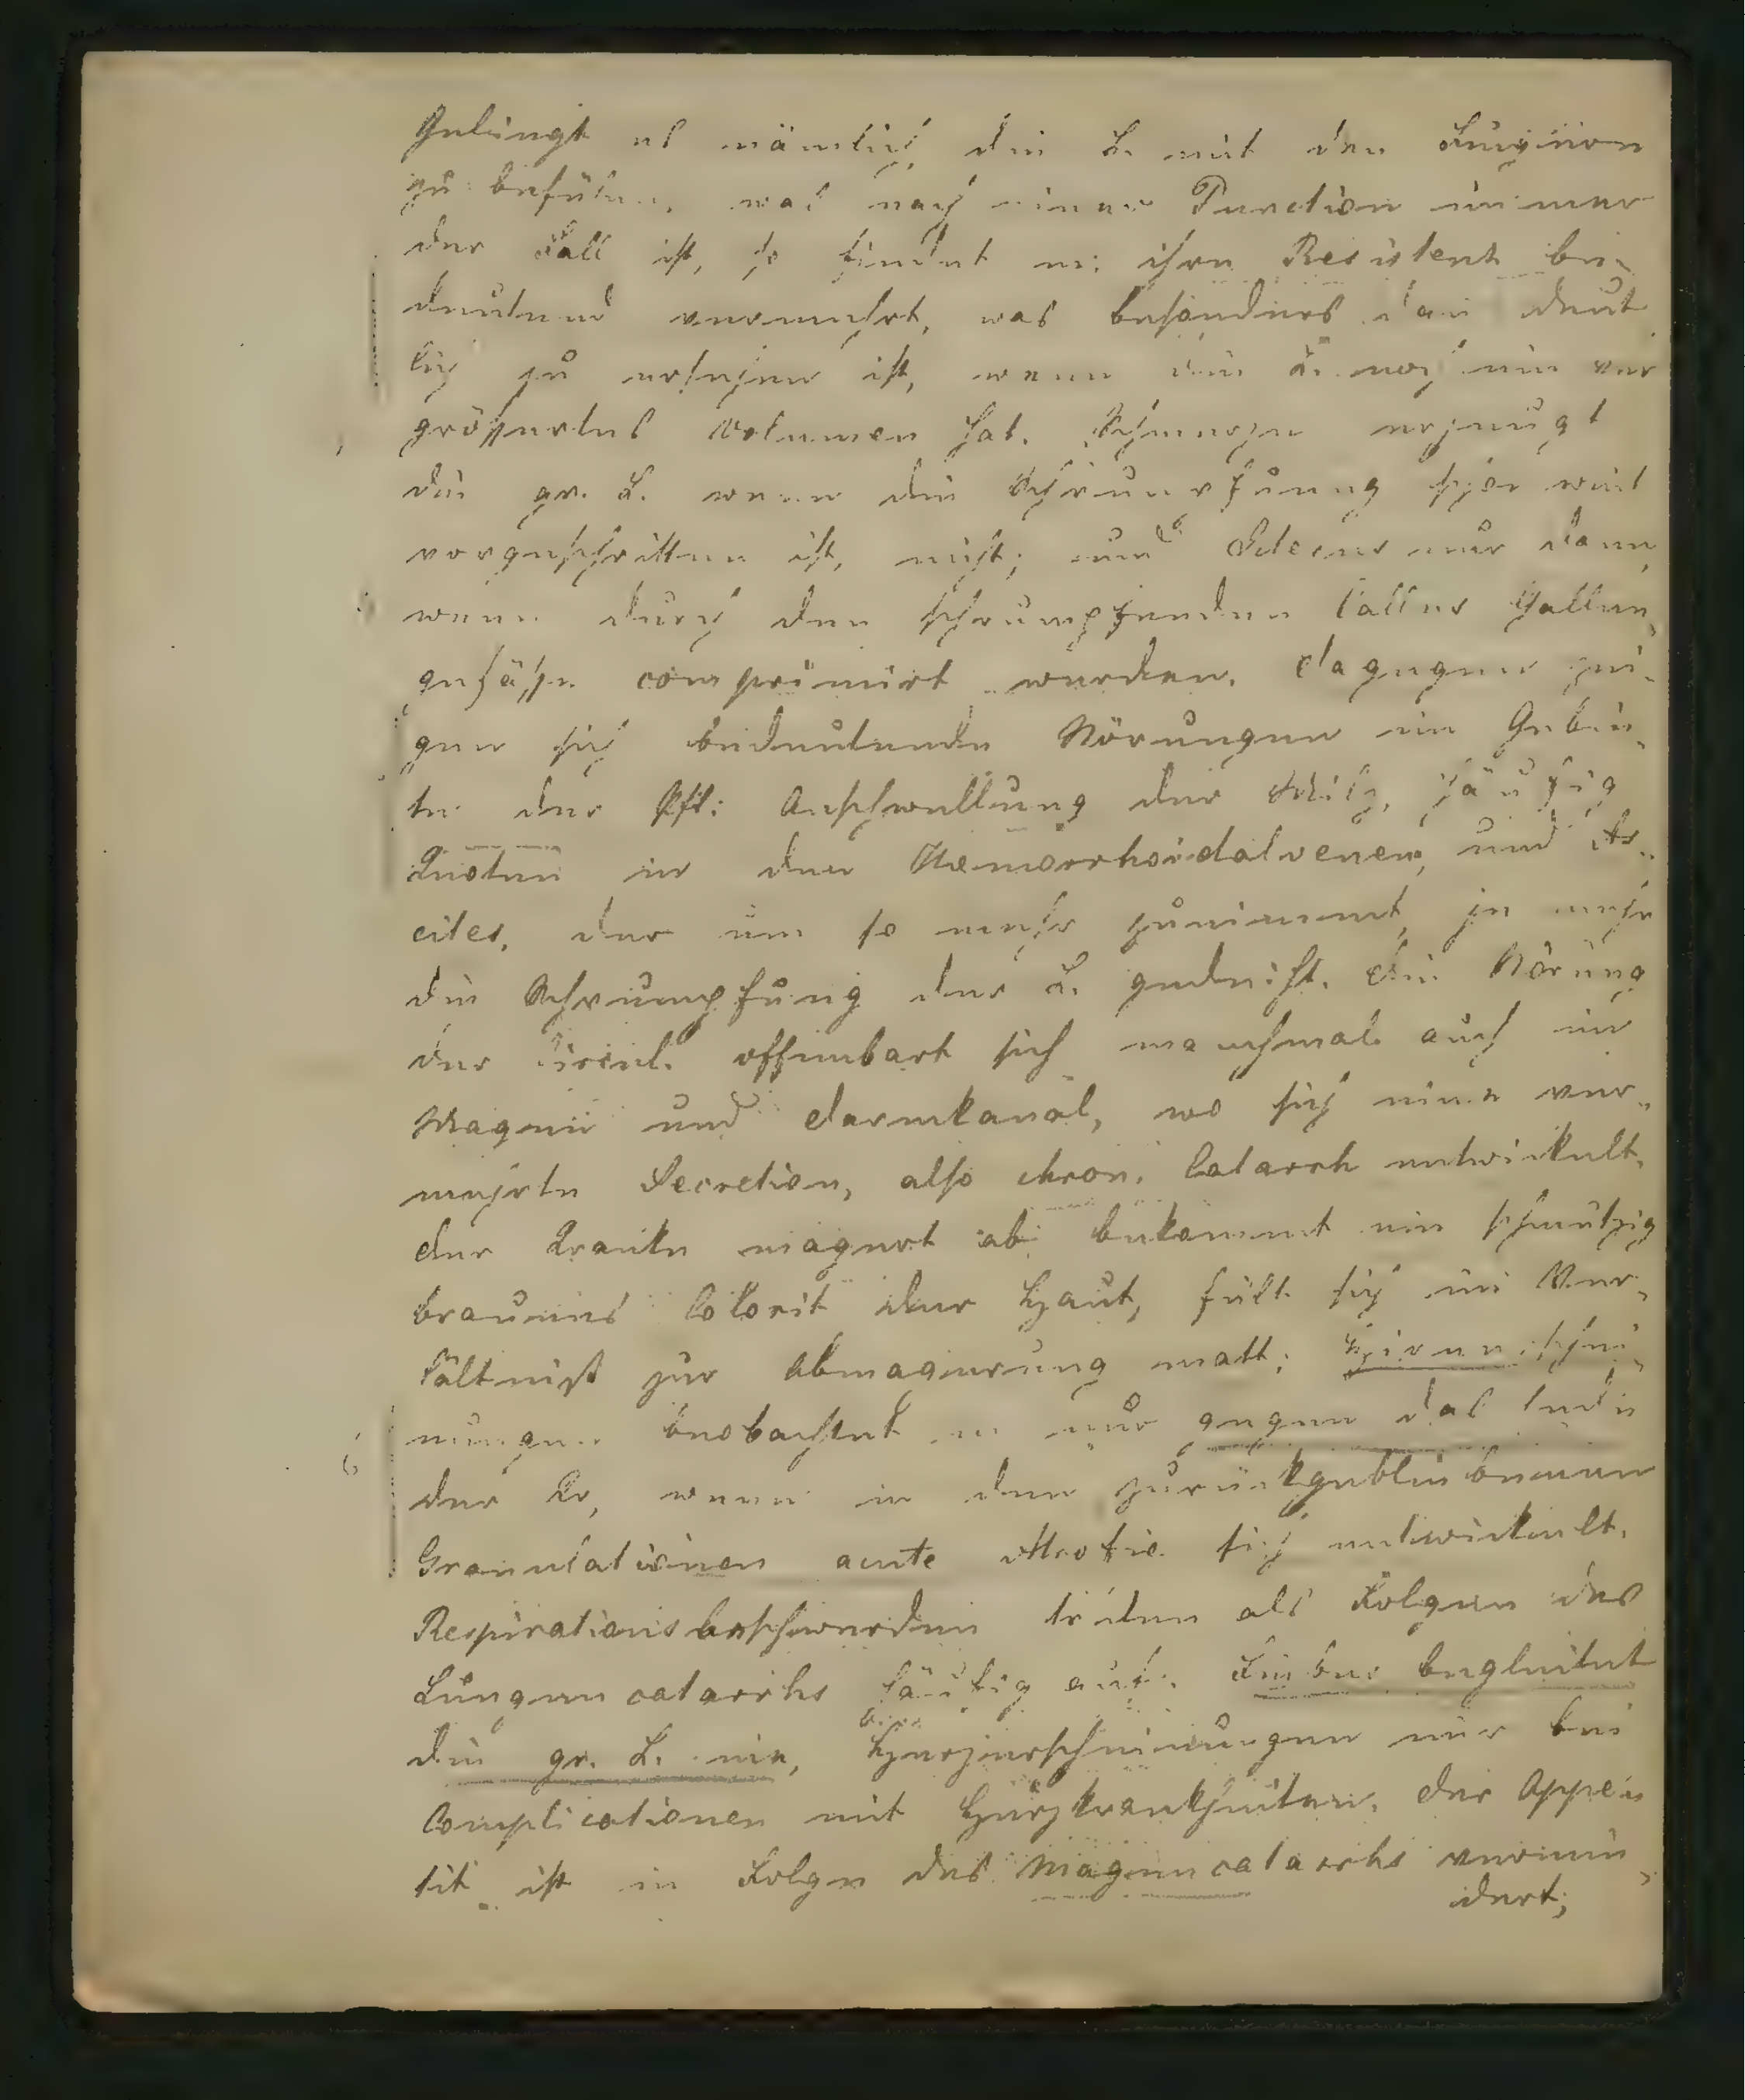 Gelingt es nämlich, die L. mit den Fingern
zu befühlen, was nach einer Punction immer
der Fall ist, so findet m: ihre Resistenz be-
deutend vermehrt, was besonders dan deut
lich zu ersehen ist, wenn die L. noch ein ver
größertes Volumen hat. Schmerzen erzeugt
die gr. L. wenn die Schrumpfung schon weit
vorgeschritten ist, nicht; und Icterus nur dann,
wenn durch den schrumpfenden Callus Gallen-
gefäße comprimirt werden. Dagegen zei-
gen sich bedeutende Störungen im Gebie-
te der Pft: Anschwellung der Milz, häufig
Knoten in den Haemorrhoidalvenen, und As-
cites, der um so mehr zunimmt, je mehr
die Schrumpfung der L. gedeiht. Die Störung
der Circul. offenbart sich manchmal auch im
Magen und Darmkanal, wo sich eine ver-
mehrte Secretion, also chron. Catarrh entwickelt.
Der Kranke magert ab, bekommt ein schmutzig
braunes Colorit der Haut, fühlt sich im Ver-
hältniß zur Abmagerung matt; Hirnerschei-
nungen beobachtet m nur gegen das Ende
der Kr, wenn in den zurückgebliebenen
Granulationen acute Atrofie sich entwickelt.
Respirationsbeschwerden träten als Folgen des
Lungencatarrhs häufig auf. Fieber begleitet
die gr. L. nie, Herzerscheinungen nur bei
Complicationen mit Herzkrankheiten. Der Appe-
tit ist in Folge des Magencatarrhs vermin-
dert;